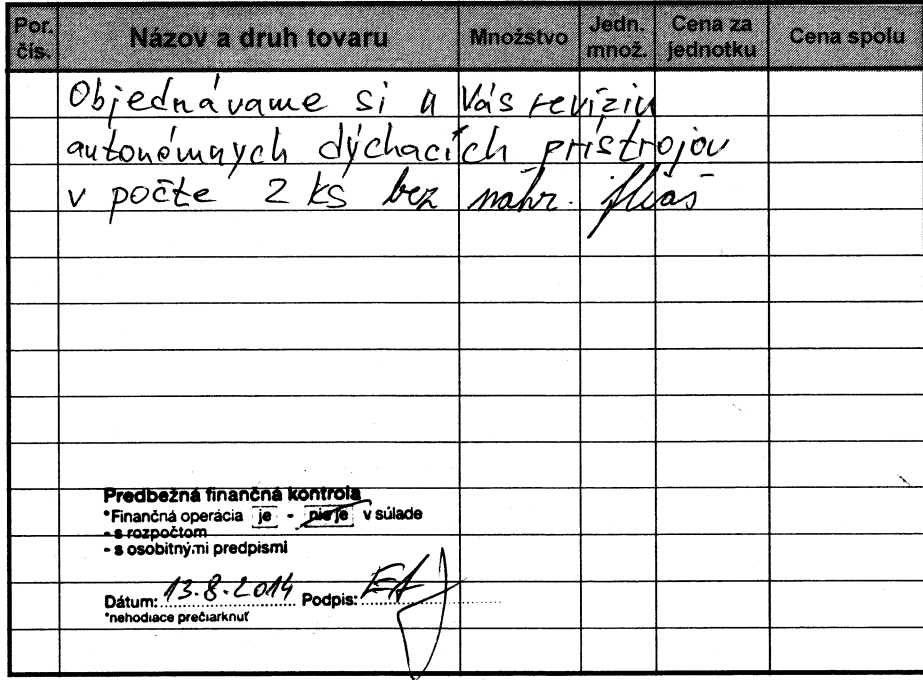 Por. čís. Názov a druh tovaru Množstvo Jedn. množ. Cena za jednotku Cena spolu
Objednávame si u Vás revíziu
autonómnych dýchacích prístrojov
v počte 2 ks bez náhr. fliaš
Predbežná finančná kontrola
*Finančná operácia je - nie je v súlade
- s rozpočtom
- s osobitnými predpismi
Dátum: 13.8.2014 Podpis:
*nehodiace prečiarknuť